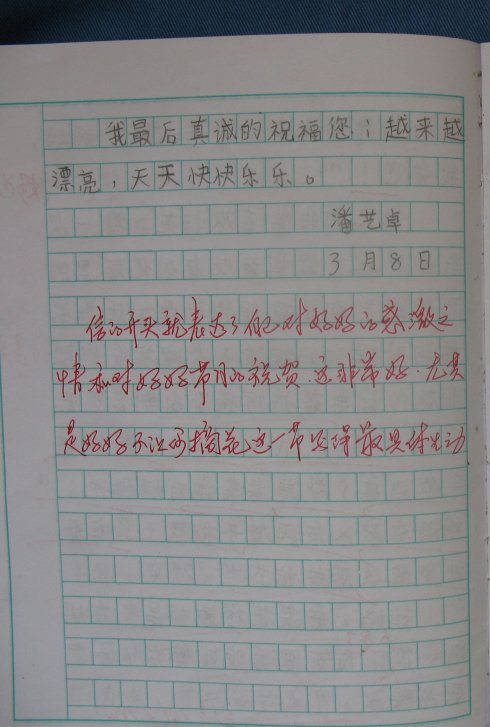 我最后真诚的祝福您：越来越
漂亮，天天快快乐乐。
潘艺卓
3月8日
信的开头就表达了你对妈妈的感激之
情和对妈妈节日的祝贺.这非常好.尤其
是妈妈不让你摘花这一节写得最具体生动